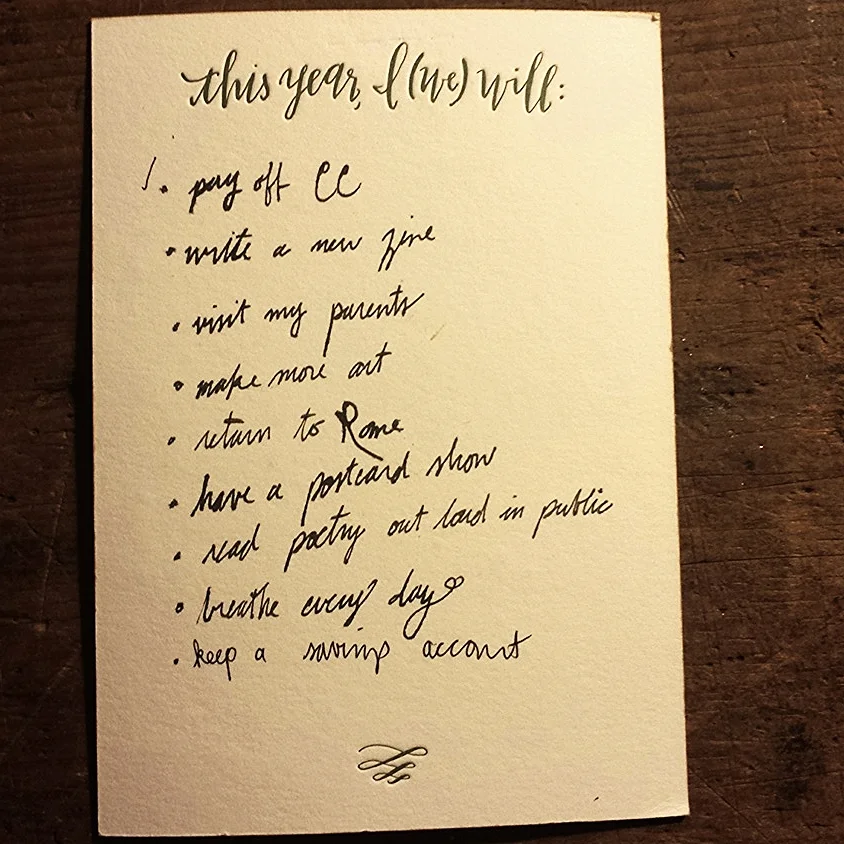 this year, I (we) will:
• pay off CC
• write a new zine
• visit my parents
• make more art
• return to Rome
• have a postcard show
• read poetry out loud in public
• breathe every day
• keep a savings account